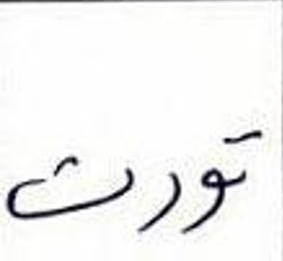 تورث